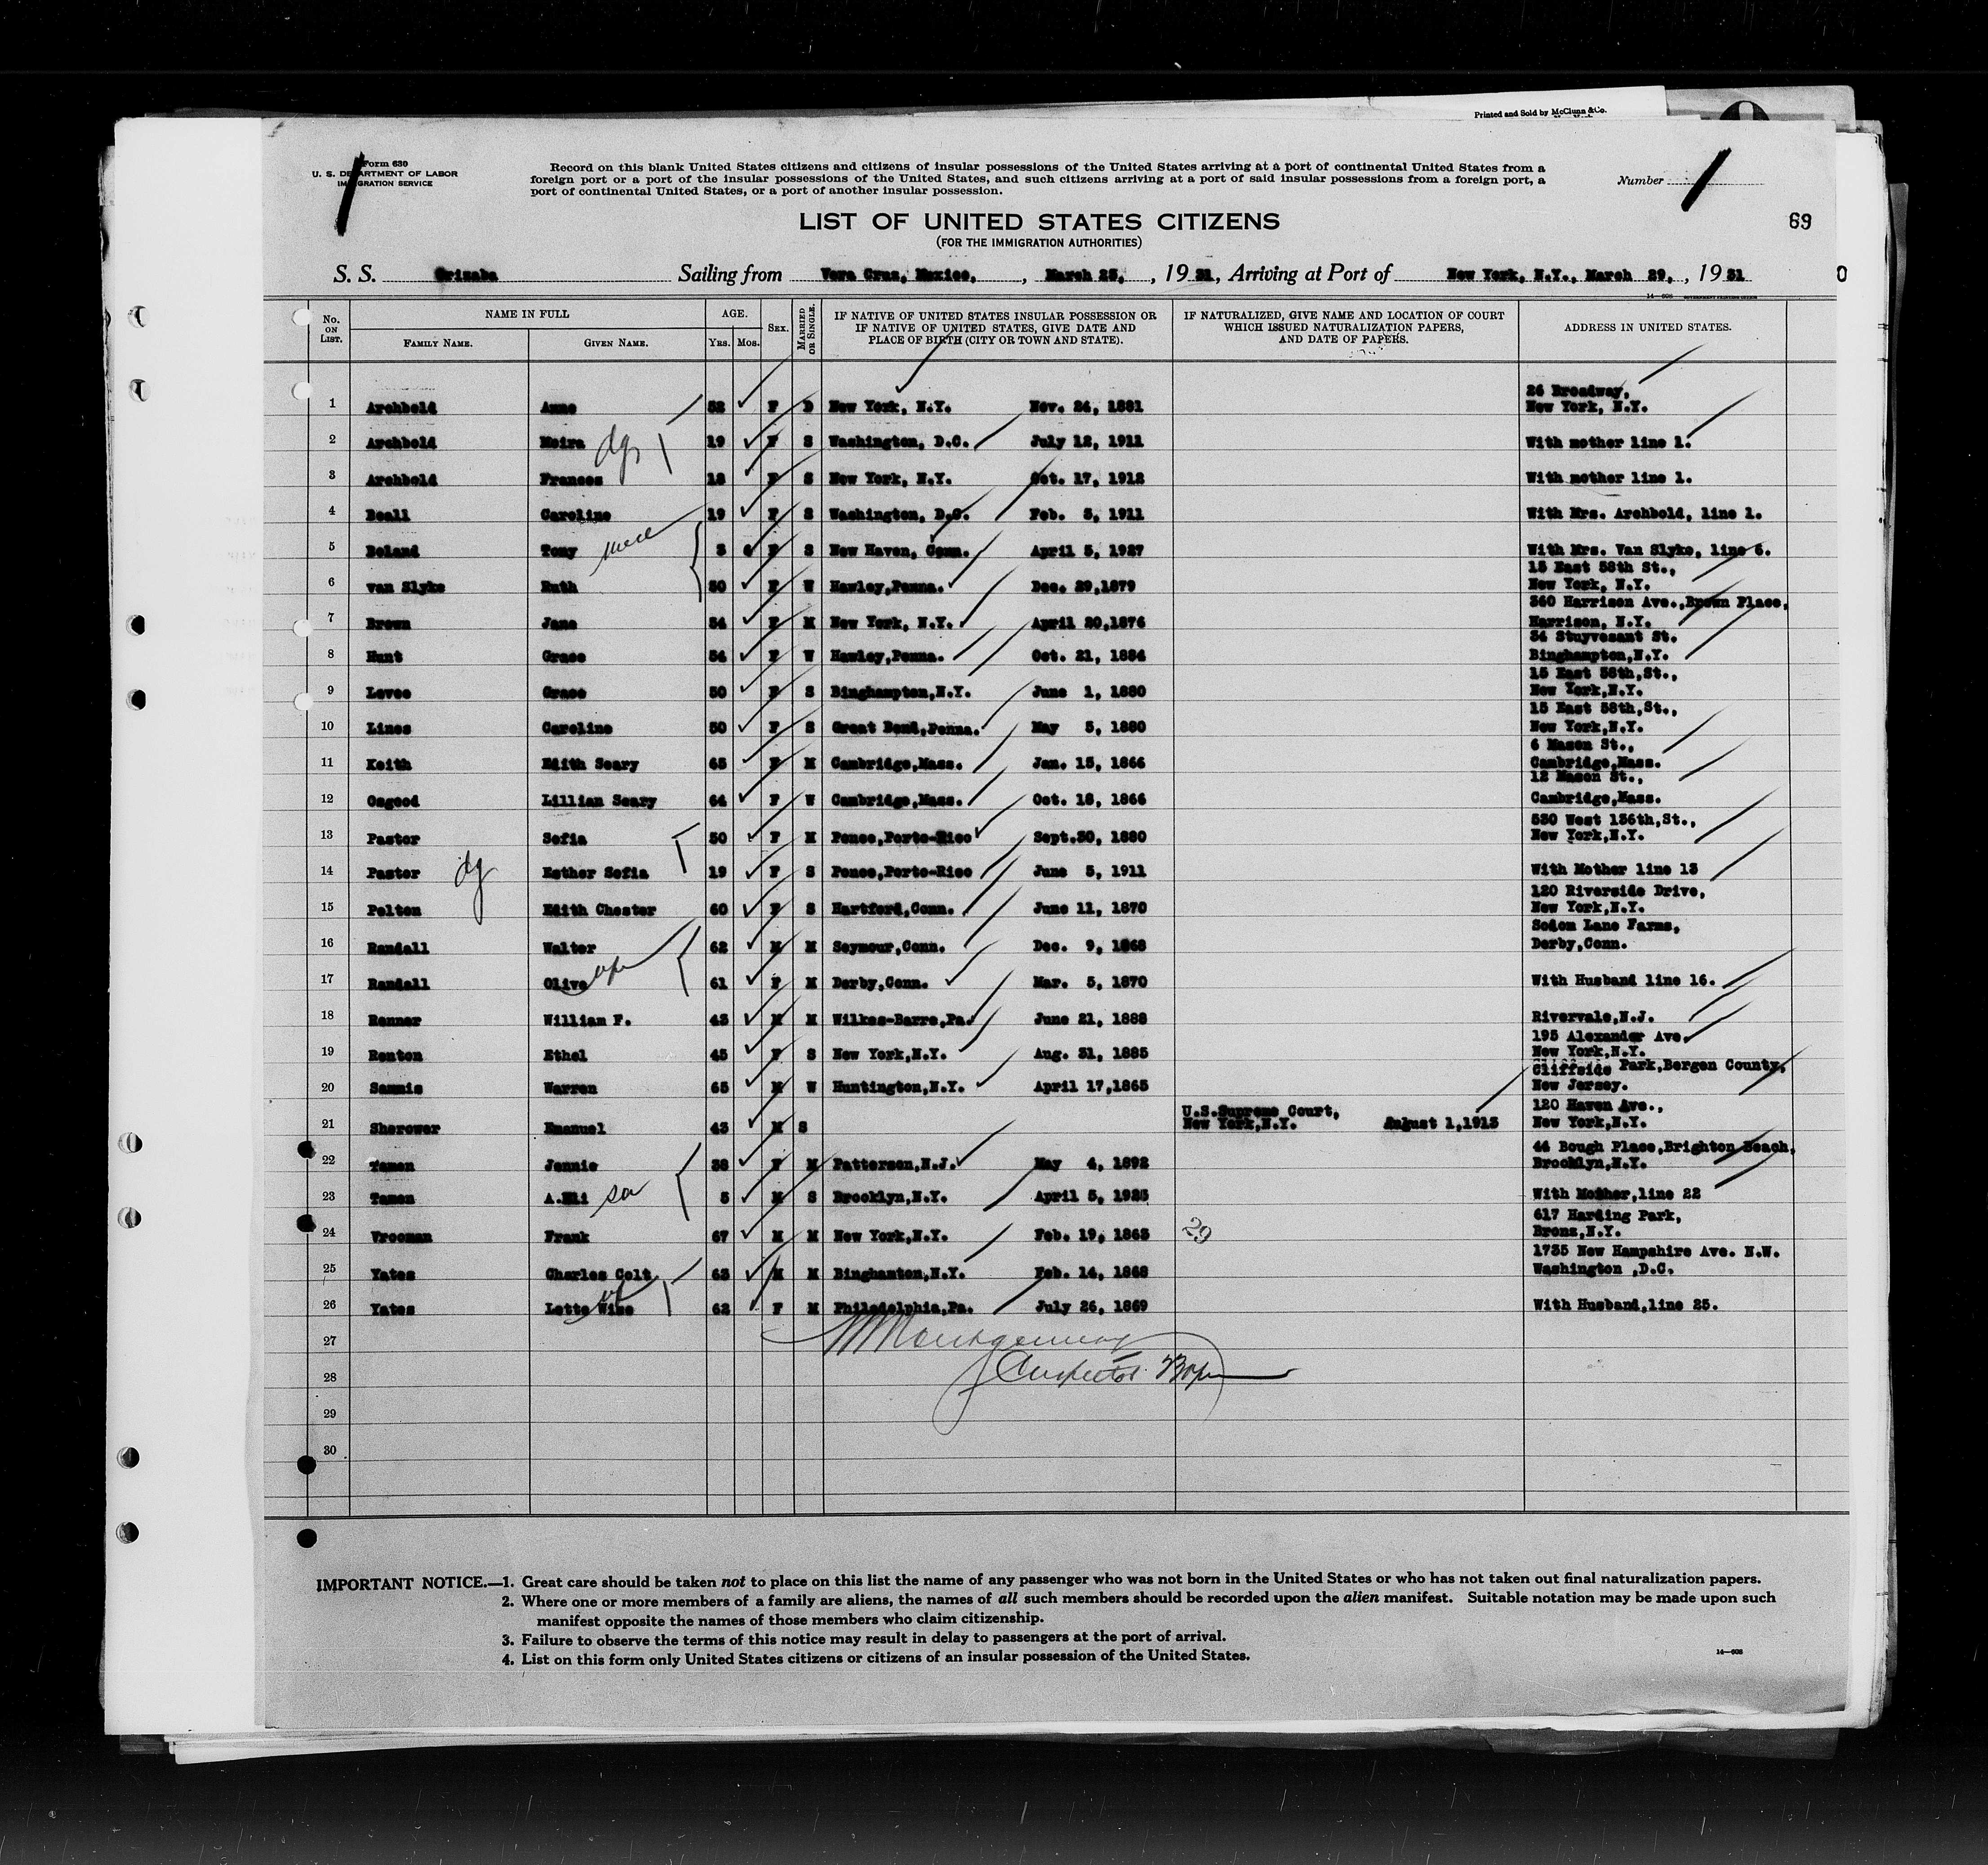 Printed and Sold by McClunn & Co.
Form 630
U. S. DEPARTMENT OF LABOR
IMMIGRATION SERVICE
Record on this blank United States citizens and citizens of insular possessions of the United States arriving at a port of continental United States from a
foreign port or a port of the insular possessions of the United States, and such citizens arriving at a port of said insular possessions from a foreign port, a
port of continental United States, or a port of another insular possession.
Number
69
LIST OF UNITED STATES CITIZENS
(FOR THE IMMIGRATION AUTHORITIES)
S. S. Orizaba Sailing from Vera Cruz, Mexico, , March 25, , 19 31, Arriving at Port of New York, N.Y., March 29, , 19 31
No. ON LIST. NAME IN FULL FAMILY NAME. GIVEN NAME. AGE. YRS. MOS. SEX. MARRIED OR SINGLE. IF NATIVE OF UNITED STATES INSULAR POSSESSION OR IF NATIVE OF UNITED STATES, GIVE DATE AND PLACE OF BIRTH (CITY OR TOWN AND STATE). IF NATURALIZED, GIVE NAME AND LOCATION OF COURT WHICH ISSUED NATURALIZATION PAPERS, AND DATE OF PAPERS. ADDRESS IN UNITED STATES.
26 Broadway,
1 Archbold Anne 52 F D New York, N.Y. Nov. 24, 1881 New York, N.Y.
2 Archbold Moira dgs 19 F S Washington, D.C. July 12, 1911 With mother line 1.
3 Archbold Frances 18 F S New York, N.Y. Oct. 17, 1912 With mother line 1.
4 Beall Caroline 19 F S Washington, D.C. Feb. 5, 1911 With Mrs. Archbold, line 1.
5 Boland Tony niece 3 F S New Haven, Conn. April 5, 1927 With Mrs. Van Slyke, line 6.
15 East 58th St.,
6 van Slyke Ruth 50 F W Hawley,Penna. Dec. 29,1879 New York, N.Y.
360 Harrison Ave.,Brown Place,
7 Brown Jane 54 F M New York, N.Y. April 20,1876 Harrison, N.Y.
34 Stuyvesant St.
8 Hunt Grace 54 F W Hawley,Penna. Oct. 21, 1884 Binghampton,N.Y.
15 East 58th,St.,
9 Lovee Grace 50 F S Binghampton,N.Y. June 1, 1880 New York,N.Y.
15 East 58th,St.,
10 Lines Caroline 50 F S Great Bend,Penna. May 5, 1880 New York,N.Y.
6 Mason St.,
11 Keith Edith Seary 65 F M Cambridge,Mass. Jan. 15, 1866 Cambridge,Mass.
12 Mason St.,
12 Osgood Lillian Seary 64 F W Cambridge,Mass. Oct. 18, 1866 Cambridge,Mass.
530 West 136th,St.,
13 Pastor Sofia 50 F M Ponce,Porto-Rico Sept.30, 1880 New York,N.Y.
14 Pastor dg Esther Sofia 19 F S Ponce,Porto-Rico June 5, 1911 With Mother line 13
120 Riverside Drive,
15 Pelton Edith Chester 60 F S Hartford,Conn. June 11, 1870 New York,N.Y.
Sodom Lane Farms,
16 Randall Walter 62 M M Seymour,Conn. Dec. 9, 1868 Derby,Conn.
17 Randall Olive 61 F M Derby,Conn. Mar. 5, 1870 With Husband line 16.
18 Renner William F. 43 M M Wilkes-Barre,Pa. June 21, 1888 Rivervale,N.J.
195 Alexander Ave.
19 Renton Ethel 45 F S New York,N.Y. Aug. 31, 1885 New York,N.Y.
Cliffside Park,Bergen County,
20 Sammis Warren 65 M W Huntington,N.Y. April 17,1865 New Jersey.
U.S.Supreme Court, 120 Haven Ave.,
21 Sherower Emanuel 43 M S New York,N.Y. August 1,1913 New York,N.Y.
44 Bough Place,Brighton Beach,
22 Tamen Jennie 38 F M Patterson,N.J. May 4, 1892 Brooklyn,N.Y.
23 Tamen A.Eli so 5 M S Brooklyn,N.Y. April 5, 1925 With Mother,line 22
617 Harding Park,
24 Vrooman Frank 67 M M New York,N.Y. Feb. 19, 1863 29 Bronx,N.Y.
1735 New Hampshire Ave. N.W.
25 Yates Charles Colt 63 M M Binghamton,N.Y. Feb. 14, 1868 Washington ,D.C.
26 Yates Lette Wise 62 F M Philadelphia,Pa. July 26, 1869 With Husband,line 25.
27 Montgomery
28 Inspector
29
30
IMPORTANT NOTICE.—1. Great care should be taken not to place on this list the name of any passenger who was not born in the United States or who has not taken out final naturalization papers.
2. Where one or more members of a family are aliens, the names of all such members should be recorded upon the alien manifest. Suitable notation may be made upon such
manifest opposite the names of those members who claim citizenship.
3. Failure to observe the terms of this notice may result in delay to passengers at the port of arrival.
4. List on this form only United States citizens or citizens of an insular possession of the United States.
14—608